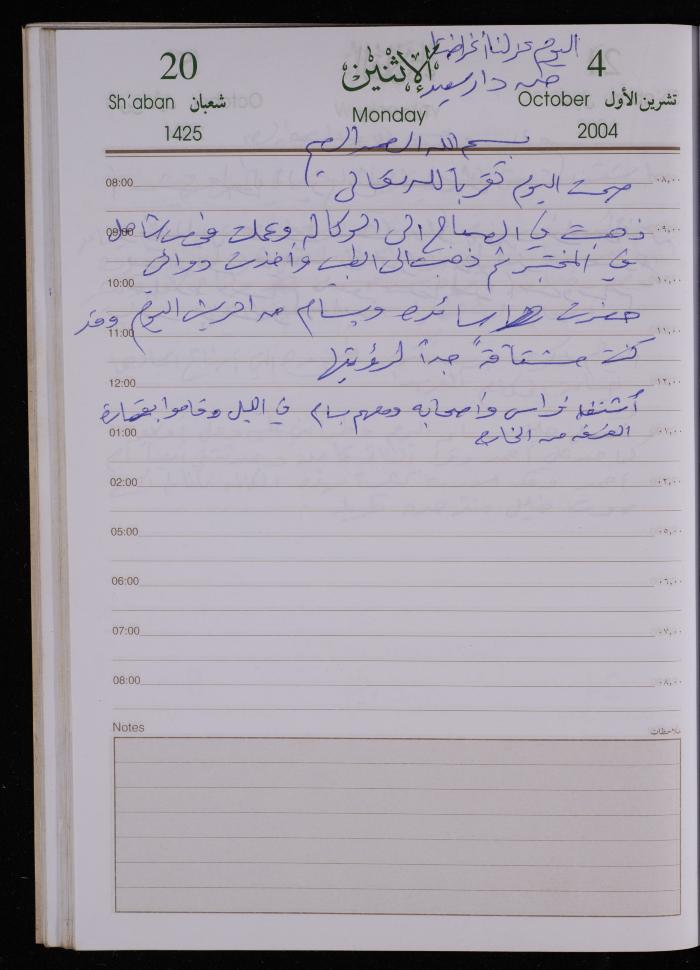 اليوم عزلنا أغراضنا
من دار سعيد
20
الإثنين
4
Sh'aban شعبان
Monday
October تشرين الأول
1425
2004
بسم الله الرحمن الرحيم
08:00 ٠٨,٠٠
صمت اليوم تقرباً لله تعالى
09:00 ٠٩,٠٠
ذهبت في الصباح الى الوكالة وعملت فحص شامل
في المختبر ثم ذهبت الى الطب وأخذت دوائي
10:00 ١٠,٠٠
حضرت سائده وبسام من اليوم وقد
11:00 ١١,٠٠
كنت مشتاقة جداً لرؤيتها
12:00 ١٢,٠٠
أشتغل فراس وأصحابه ومعهم بسام في الليل وقاموا بقصارة
01:00 ٠١,٠٠
الغرفه من الخارج
02:00 ٠٢,٠٠
05:00 ٠٥,٠٠
06:00 ٠٦,٠٠
07:00 ٠٧,٠٠
08:00 ٠٨,٠٠
Notes ملاحظات